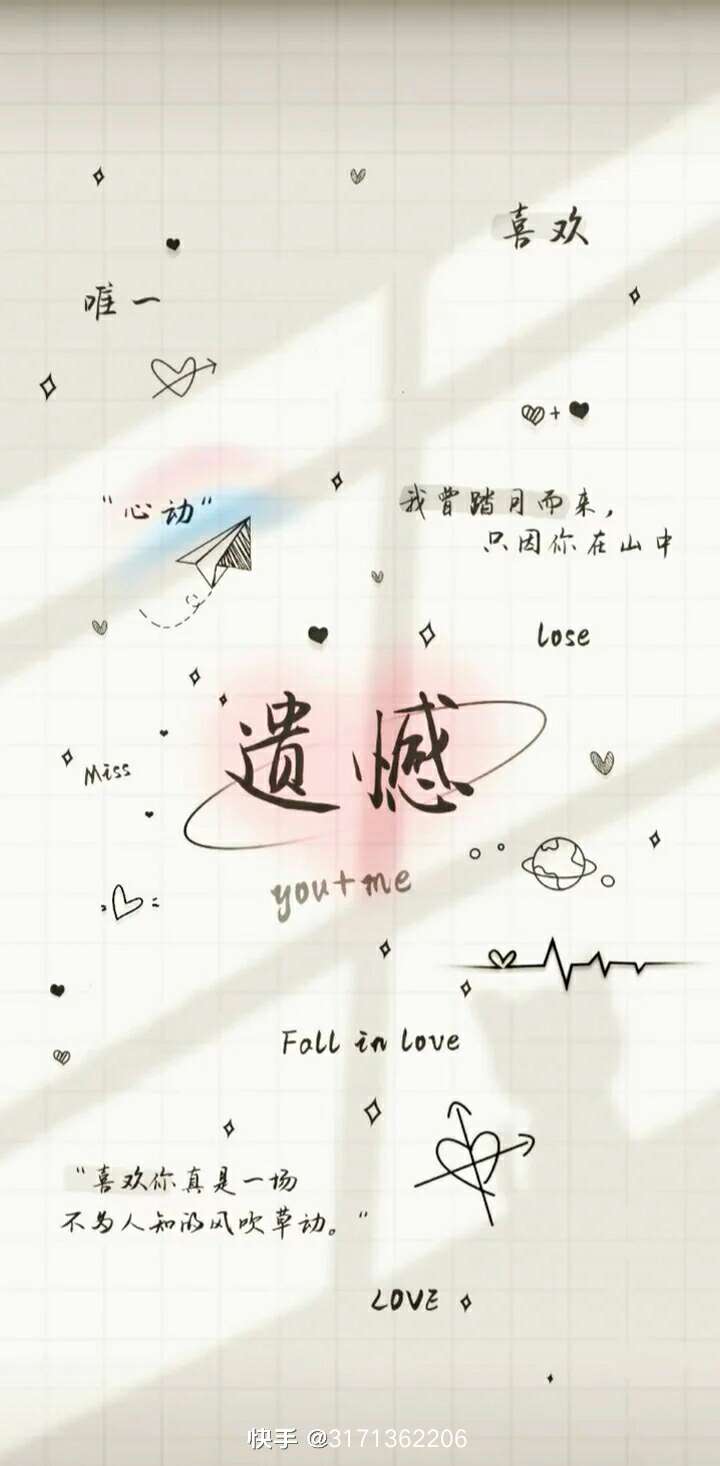 喜欢
唯一
"心动"
我曾踏月而来，
只因你在山中
Lose
遗憾
Miss
you+me
Fall in Love
"喜欢你真是一场
不为人知的风吹草动。"
LOVE
快手 @3171362206